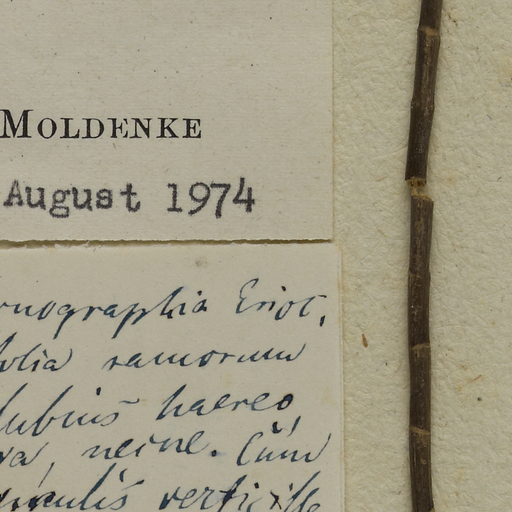 MOLDENKE
August 1974
nographia Eriot.
folia ramorum
dubius haereo,
va, necne. Cum
verticille